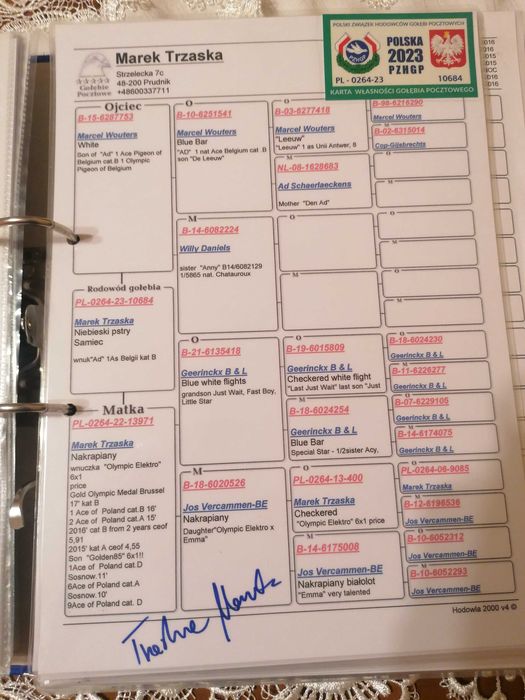 Marek Trzaska
Strzelecka 7c
48-200 Prudnik
+48600337711
Gołębie
Pocztowe
POLSKI ZWIĄZEK HODOWCÓW GOŁĘBI POCZTOWYCH
POLSKA
2023
PZHGP
PL - 0264-23
10684
KARTA WŁASNOŚCI GOŁĘBIA POCZTOWEGO
Ojciec
B-15-6287753
Marcel Wouters
White
Son of "Ad" 1 Ace Pigeon of
Belgium cat B 1 Olympic
Pigeon of Belgium
Rodowód gołębia
PL-0264-23-10684
Marek Trzaska
Niebieski pstry
Samiec
wnuk"Ad" 1As Belgii kat B
Matka
PL-0264-22-13971
Marek Trzaska
Nakrapiany
wnuczka "Olympic Elektro"
6x1
price
Gold Olympic Medal Brussel
17' kat B
1 Ace of Poland cat.B 16'
2 Ace of Poland cat.A 15'
2016' cat B from 2 years ceof
5,91
2015' kat A ceof 4,55
Son "Golden85" 6x1!!
1Ace of Poland cat.D
Sosnow.11'
6Ace of Poland cat.A
Sosnow.10'
9Ace of Poland cat. D
O
B-10-6251541
Marcel Wouters
Blue Bar
"AD" 1 nat Ace Belgium cat B
son "De Leeuw"
M
B-14-6082224
Willy Daniels
sister "Anny" B14/6082129
1/5865 nat. Chatauroux
O
B-21-6135418
Geerinckx B & L
Blue white flights
grandson Just Wait, Fast Boy,
Little Star
M
B-18-6020526
Jos Vercammen-BE
Nakrapiany
Daughter"Olympic Elektro x
Emma"
O
B-03-6277418
Marcel Wouters
"Leeuw"
"Leeuw" 1 as Unii Antwer, 8
M
NL-08-1628683
Ad Schaerlaeckens
Mother "Den Ad"
O
M
O
B-19-6015809
Geerinckx B & L
Checkered white flight
"Last Just Wait" last son "Just
M
B-18-6024254
Geerinckx B & L
Blue Bar
Special Star - 1/2sister Acy,
O
PL-0264-13-400
Marek Trzaska
Checkered
"Olympic Elektro" 6x1 price
M
B-14-6175008
Jos Vercammen-BE
Nakrapiany białolot
"Emma" very talented
B-98-6216290
Marcel Wouters
B-02-6315014
Cop-Gijsbrechts
O
M
O
M
O
M
B-18-6024230
Geerinckx B & L
B-11-6226277
Geerinckx B & L
B-07-6229105
Geerinckx B & L
B-14-6174075
Geerinckx B & L
PL-0264-06-9085
Marek Trzaska
B-12-6196536
Jos Vercammen-BE
B-10-6052312
Jos Vercammen-BE
B-10-6052293
Jos Vercammen-BE
Hodowla 2000 v4 ©